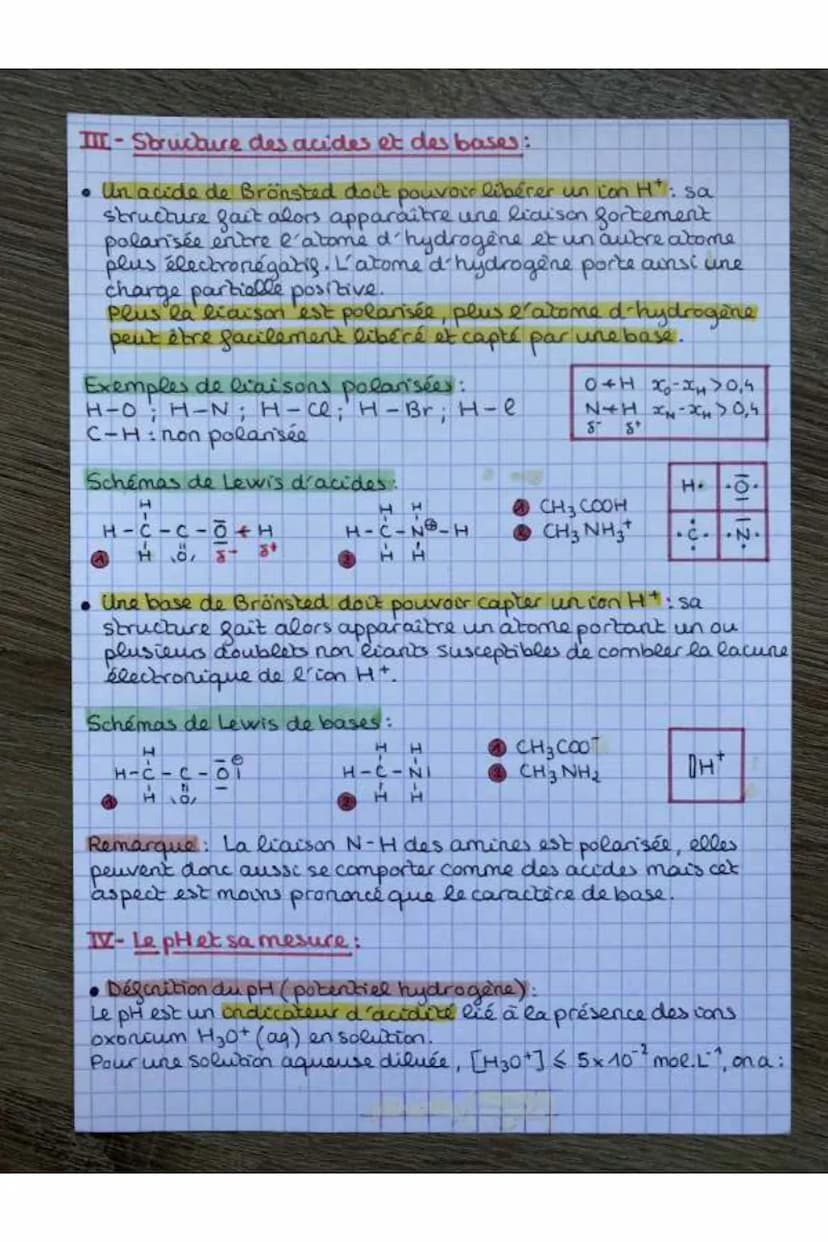 III - Structure des acides et des bases :
• Un acide de Brönsted doit pouvoir libérer un ion H⁺ : sa
structure fait alors apparaître une liaison fortement
polarisée entre l'atome d'hydrogène et un autre atome
plus électronégatif. L'atome d'hydrogène porte ainsi une
charge partielle positive.
Plus la liaison est polarisée, plus l'atome d'hydrogène
peut être facilement libéré et capté par une base.
Exemples de liaisons polarisées :
H-O ; H-N ; H-Cl ; H-Br ; H-l
C-H : non polarisée
O+H xₒ-xₕ > 0,4
N+H x_N-xₕ > 0,4
δ⁻ δ⁺
Schémas de Lewis d'acides :
H
H-C-C-O+H
H O δ- δ+
1
H H
H-C-N⊕-H
H H
2
1 CH₃COOH
2 CH₃NH₃⁺
H• •O•
•C• •N•
• Une base de Brönsted doit pouvoir capter un ion H⁺ : sa
structure fait alors apparaître un atome portant un ou
plusieurs doublets non liants susceptibles de combler la lacune
électronique de l'ion H⁺.
Schémas de Lewis de bases :
H
H-C-C-O⊖
H O
1
H H
H-C-N|
H H
2
1 CH₃COO⁻
2 CH₃NH₂
▯H⁺
Remarque : La liaison N-H des amines est polarisée, elles
peuvent donc aussi se comporter comme des acides mais cet
aspect est moins prononcé que le caractère de base.
IV - Le pH et sa mesure :
• Définition du pH (potentiel hydrogène) :
Le pH est un indicateur d'acidité lié à la présence des ions
oxonium H₃O⁺ (aq) en solution.
Pour une solution aqueuse diluée, [H₃O⁺] ⩽ 5×10⁻² mol.L⁻¹, on a :